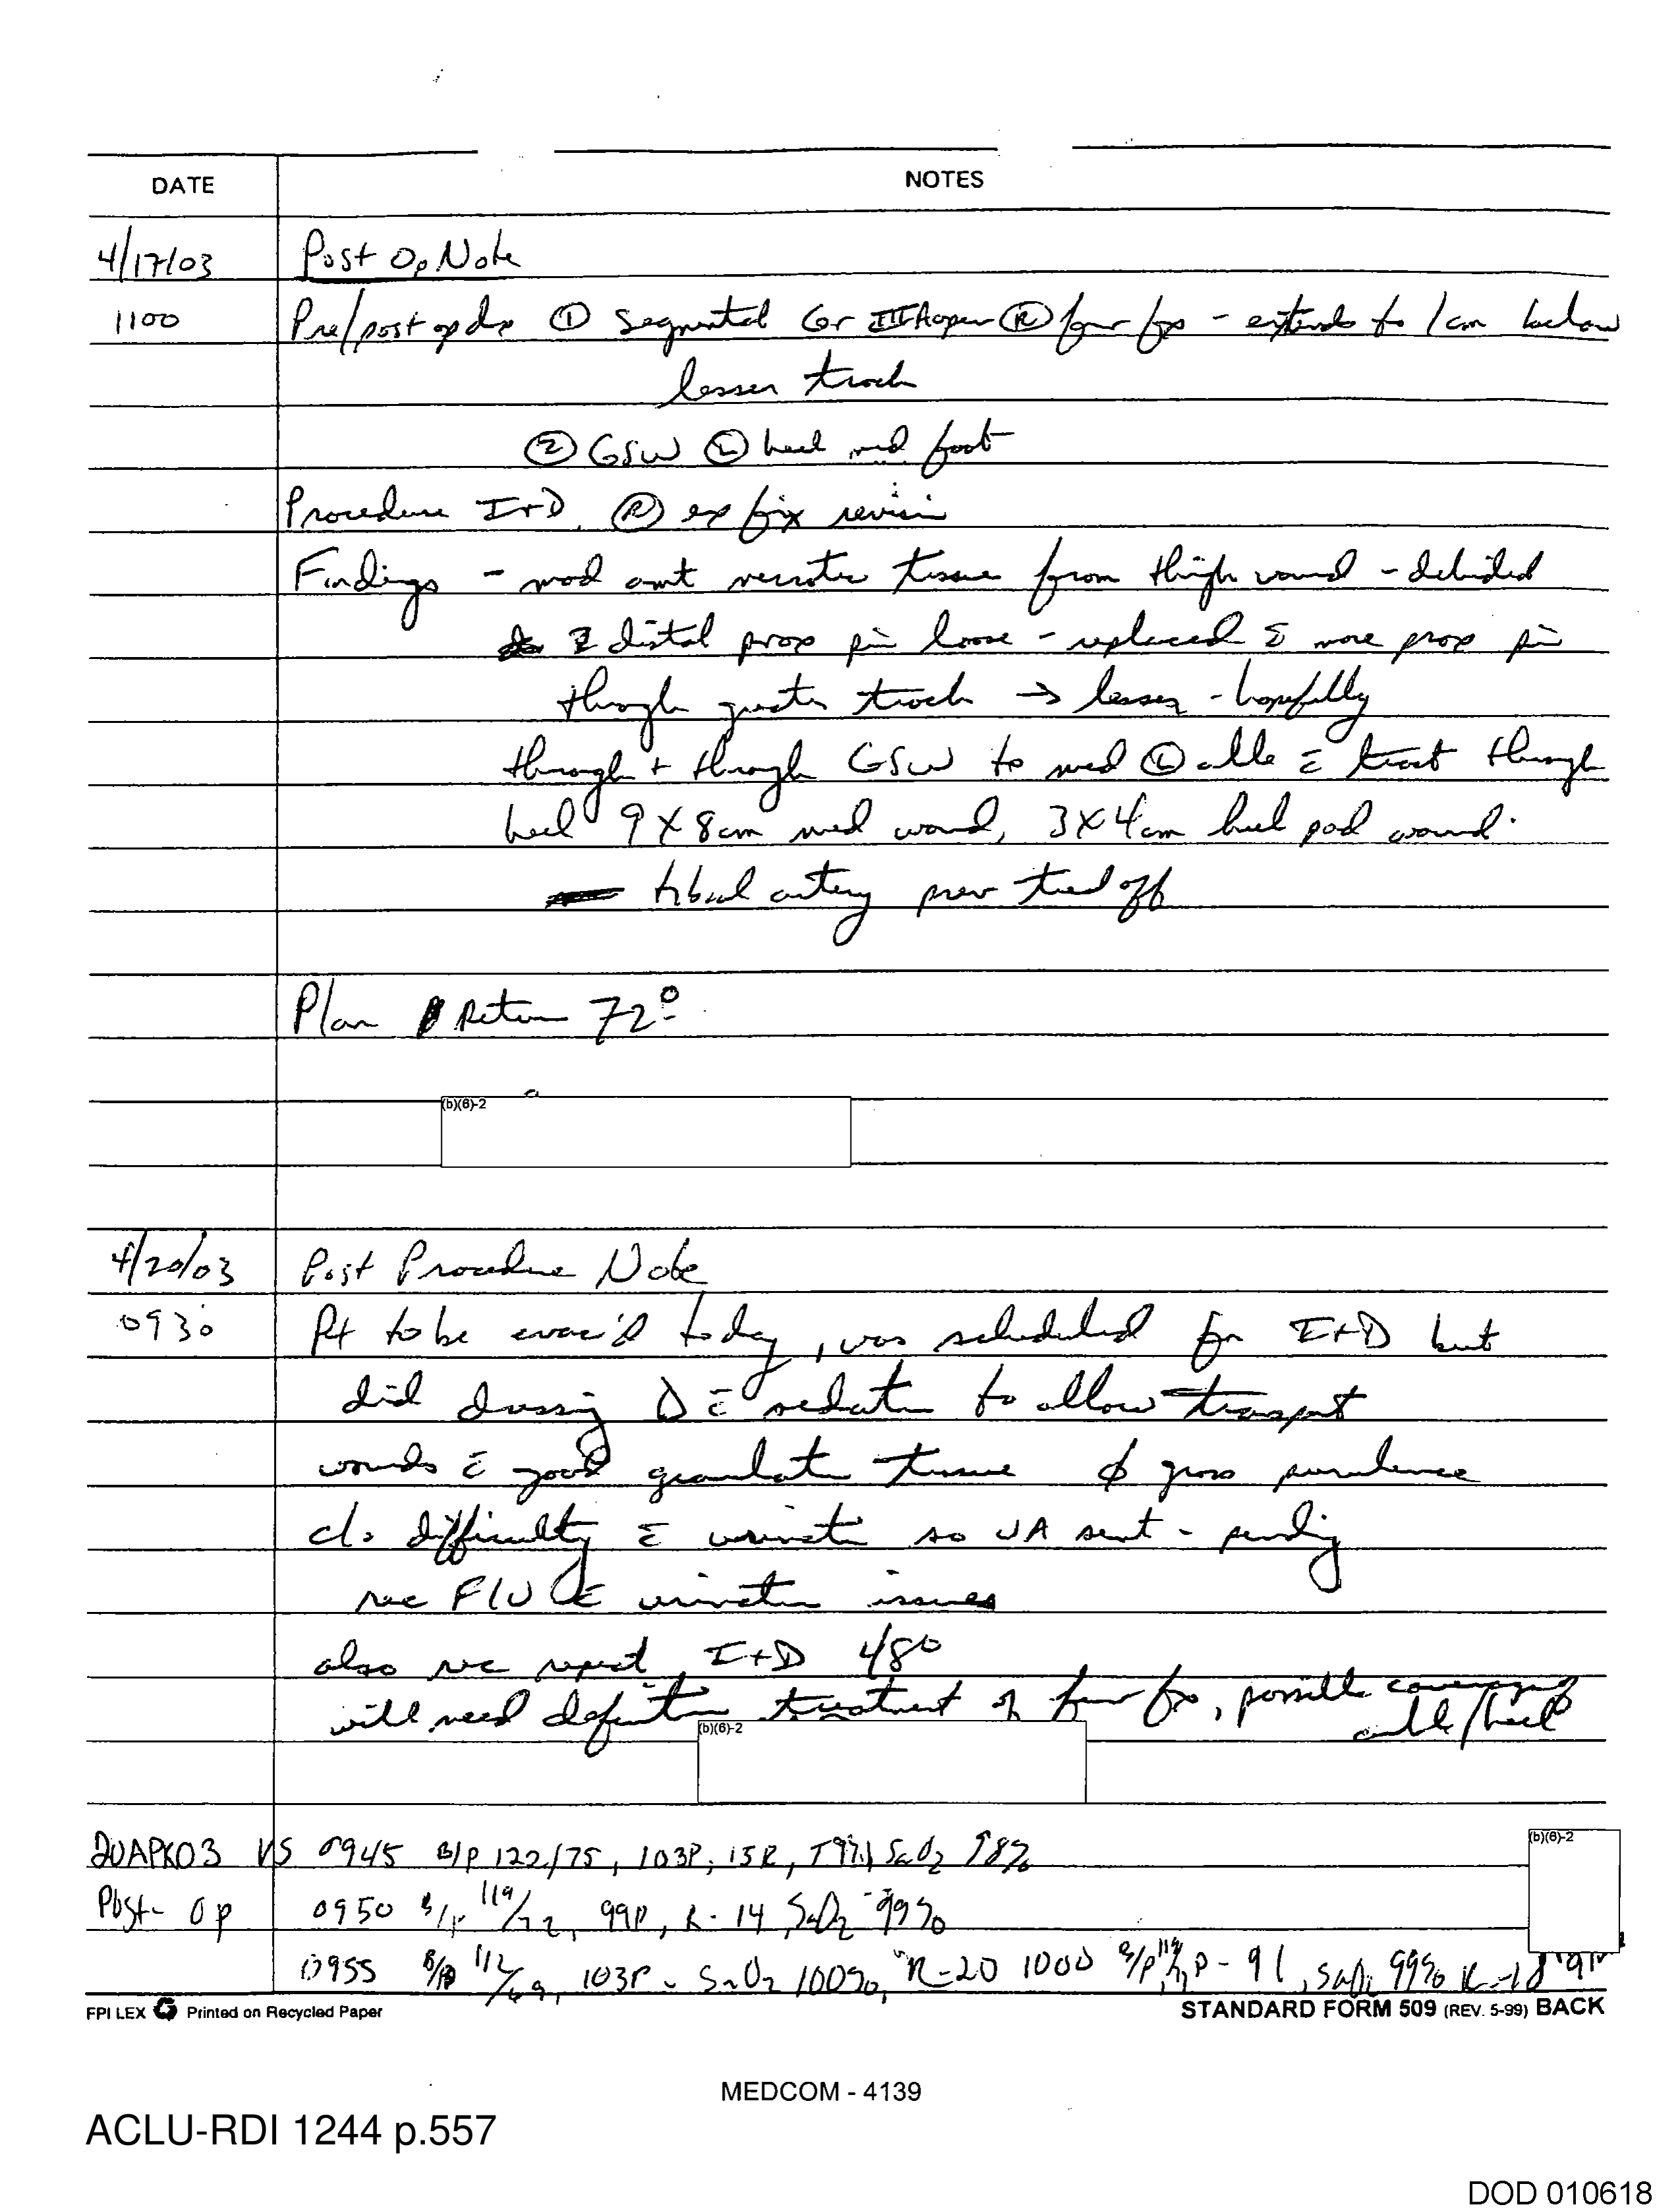 DATE NOTES
4/17/03 Post Op Note
1100 Pre/post op dx ① Segmental Gr IIIA open Ⓡ femur fx - extends to 1cm below
lesser troch
② GSW Ⓛ heel med foot
Procedure I+D, Ⓡ ex fix revision
Findings - mod amt necrotic tissue from thigh wound - debrided
distal prox pin loose - replaced c̄ more prox pin
through greater troch → lesser - hopefully
through + through GSW to med Ⓛ ankle c̄ tract through
heel 9 X 8cm med wound, 3X4cm heel pad wound.
tibial artery prev tied off
Plan Return 72°
(b)(6)-2
4/20/03 Post Procedure Note
0930 Pt to be evac'd today, was scheduled for I+D but
did dressing Δ c̄ sedation to allow transport
wounds c̄ good granulation tissue ∅ gross purulence
c/o difficulty c̄ urination so UA sent - pending
rec F/U c̄ urination issues
also rec repeat I+D 48°
will need definitive treatment of femur fx, possible coverage of
ankle/heel
(b)(6)-2
20APR03 VS 0945 B/P 122/75, 103P, 15R, T97.1 SaO2 98%
(b)(6)-2
Post-Op 0950 B/P 119/72, 99P, R-14 SaO2 99%
0955 B/P 112/69, 103P - SaO2 100%, R-20 1000 B/P P-91, SaO2 99% R-18
FPI LEX Printed on Recycled Paper STANDARD FORM 509 (REV. 5-99) BACK
MEDCOM - 4139
ACLU-RDI 1244 p.557
DOD 010618